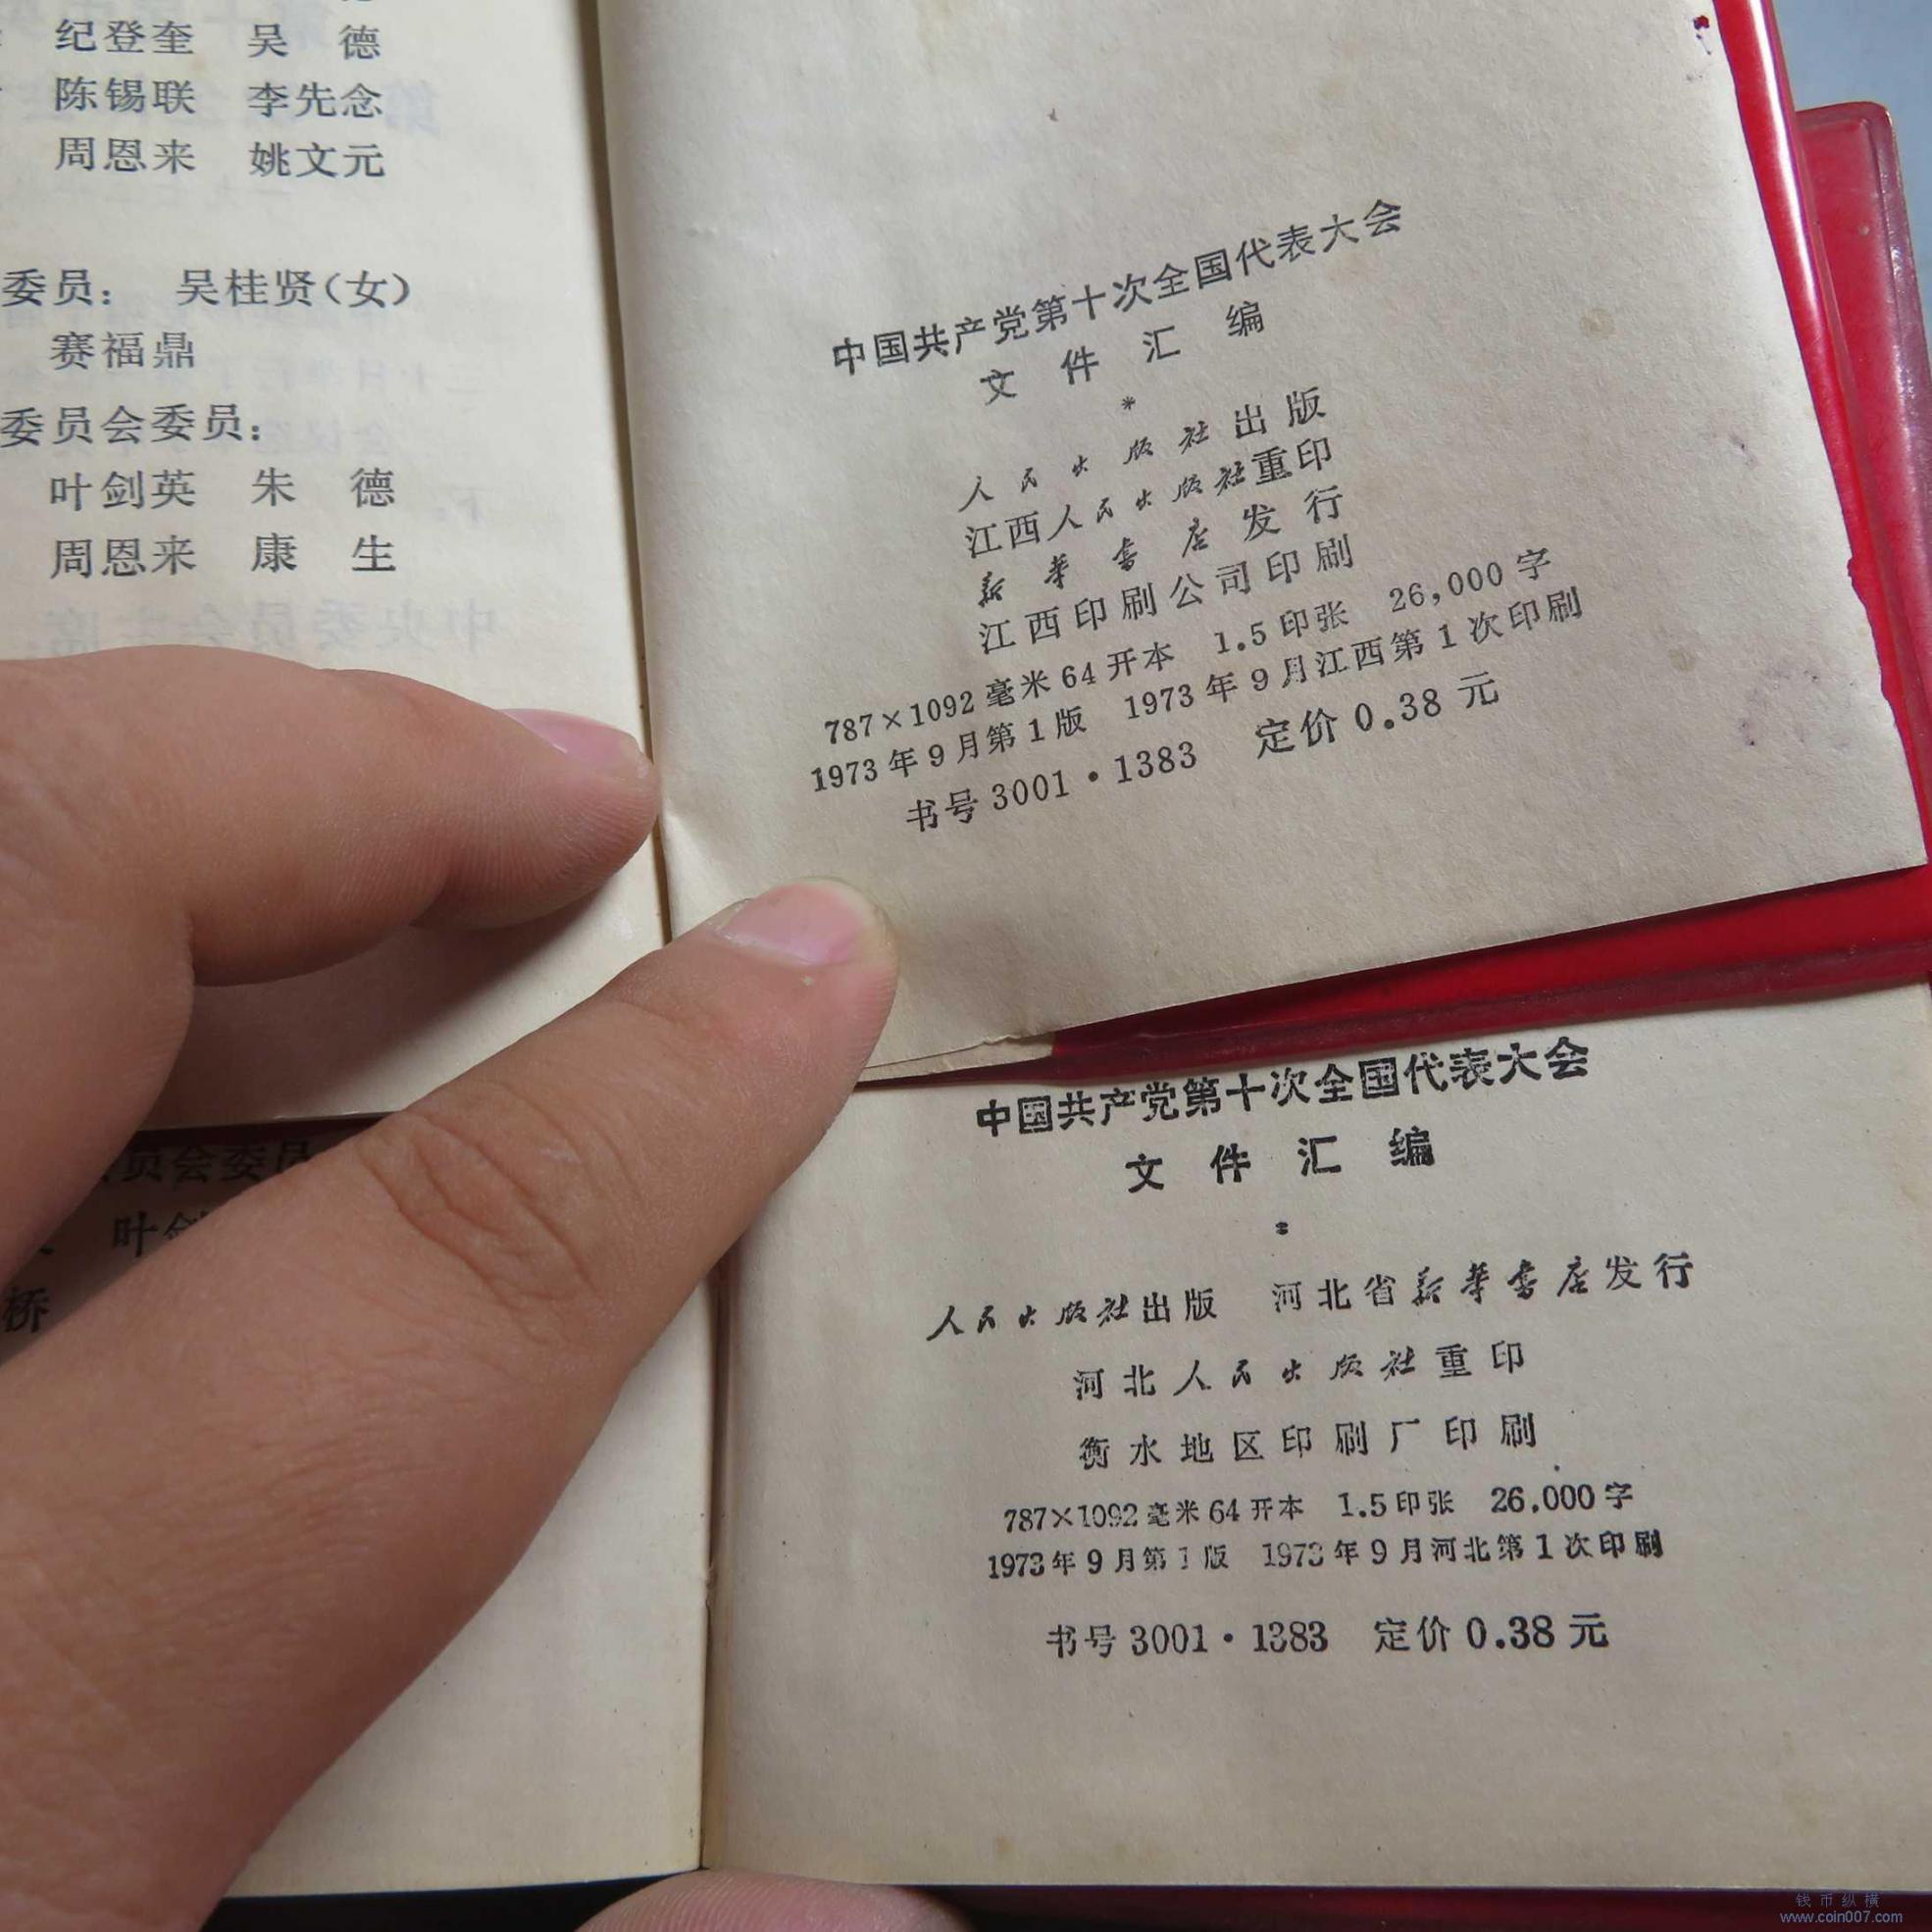 纪登奎 吴 德
陈锡联 李先念
周恩来 姚文元
委员： 吴桂贤（女）
赛福鼎
委员会委员：
叶剑英 朱 德
周恩来 康 生
中国共产党第十次全国代表大会
文 件 汇 编
*
人民出版社出版
江西人民出版社重印
新华书店发行
江西印刷公司印刷
787×1092毫米64开本 1.5印张 26,000字
1973年9月第1版 1973年9月江西第1次印刷
书号3001·1383 定价0.38元
员会委员
叶剑
桥
中国共产党第十次全国代表大会
文 件 汇 编
人民出版社出版 河北省新华书店发行
河北人民出版社重印
衡水地区印刷厂印刷
787×1092毫米64开本 1.5印张 26.000字
1973年9月第1版 1973年9月河北第1次印刷
书号3001·1383 定价0.38元
钱币纵横
www.coin007.com